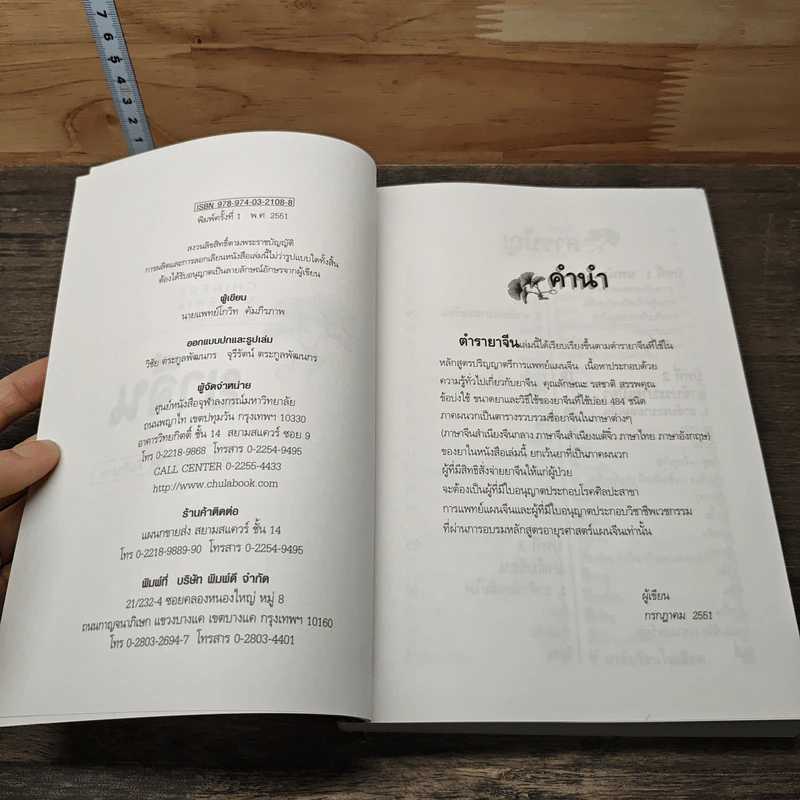 7
6
5
4
3
2
1
ISBN 978-974-03-2108-8
พิมพ์ครั้งที่ 1 พ.ศ. 2551
สงวนลิขสิทธิ์ตามพระราชบัญญัติ
การผลิตและการลอกเลียนหนังสือเล่มนี้ไม่ว่ารูปแบบใดทั้งสิ้น
ต้องได้รับอนุญาตเป็นลายลักษณ์อักษรจากผู้เขียน
ผู้เขียน
นายแพทย์โกวิท คัมภีรภาพ
ออกแบบปกและรูปเล่ม
วิชัย ตระกูลพัฒนกร จุรีรัตน์ ตระกูลพัฒนกร
ผู้จัดจำหน่าย
ศูนย์หนังสือจุฬาลงกรณ์มหาวิทยาลัย
ถนนพญาไท เขตปทุมวัน กรุงเทพฯ 10330
อาคารวิทยกิตติ์ ชั้น 14 สยามสแควร์ ซอย 9
โทร 0-2218-9868 โทรสาร 0-2254-9495
CALL CENTER 0-2255-4433
http://www.chulabook.com
ร้านค้าติดต่อ
แผนกขายส่ง สยามสแควร์ ชั้น 14
โทร 0-2218-9889-90 โทรสาร 0-2254-9495
พิมพ์ที่ บริษัท พิมพ์ดี จำกัด
21/232-4 ซอยคลองหนองใหญ่ หมู่ 8
ถนนกาญจนาภิเษก แขวงบางแค เขตบางแค กรุงเทพฯ 10160
โทร 0-2803-2694-7 โทรสาร 0-2803-4401
คำนำ
ตำรายาจีนเล่มนี้ได้เรียบเรียงขึ้นตามตำรายาจีนที่ใช้ใน
หลักสูตรปริญญาตรีการแพทย์แผนจีน เนื้อหาประกอบด้วย
ความรู้ทั่วไปเกี่ยวกับยาจีน คุณลักษณะ รสชาติ สรรพคุณ
ข้อบ่งใช้ ขนาดยาและวิธีใช้ของยาจีนที่ใช้บ่อย 484 ชนิด
ภาคผนวกเป็นตารางรวบรวมชื่อยาจีนในภาษาต่างๆ
(ภาษาจีนสำเนียงจีนกลาง ภาษาจีนสำเนียงแต้จิ๋ว ภาษาไทย ภาษาอังกฤษ)
ของยาในหนังสือเล่มนี้ ยกเว้นยาที่เป็นภาคผนวก
ผู้ที่มีสิทธิสั่งจ่ายยาจีนให้แก่ผู้ป่วย
จะต้องเป็นผู้ที่มีใบอนุญาตประกอบโรคศิลปะสาขา
การแพทย์แผนจีนและผู้ที่มีใบอนุญาตประกอบวิชาชีพเวชกรรม
ที่ผ่านการอบรมหลักสูตรอายุรศาสตร์แผนจีนเท่านั้น
ผู้เขียน
กรกฎาคม 2551